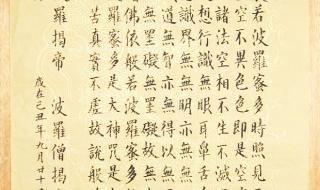 般若波羅蜜多時照見
空不異色色即是空
諸法空相不生不滅
想行識無眼耳鼻舌
識界無無明亦無
道無智亦無得以無
無罣礙無罣礙故無
佛依般若波羅蜜多
羅蜜多是大神咒是
苦真實不虛故說般
羅揭帝 波羅僧揭
歲在己丑年九月廿